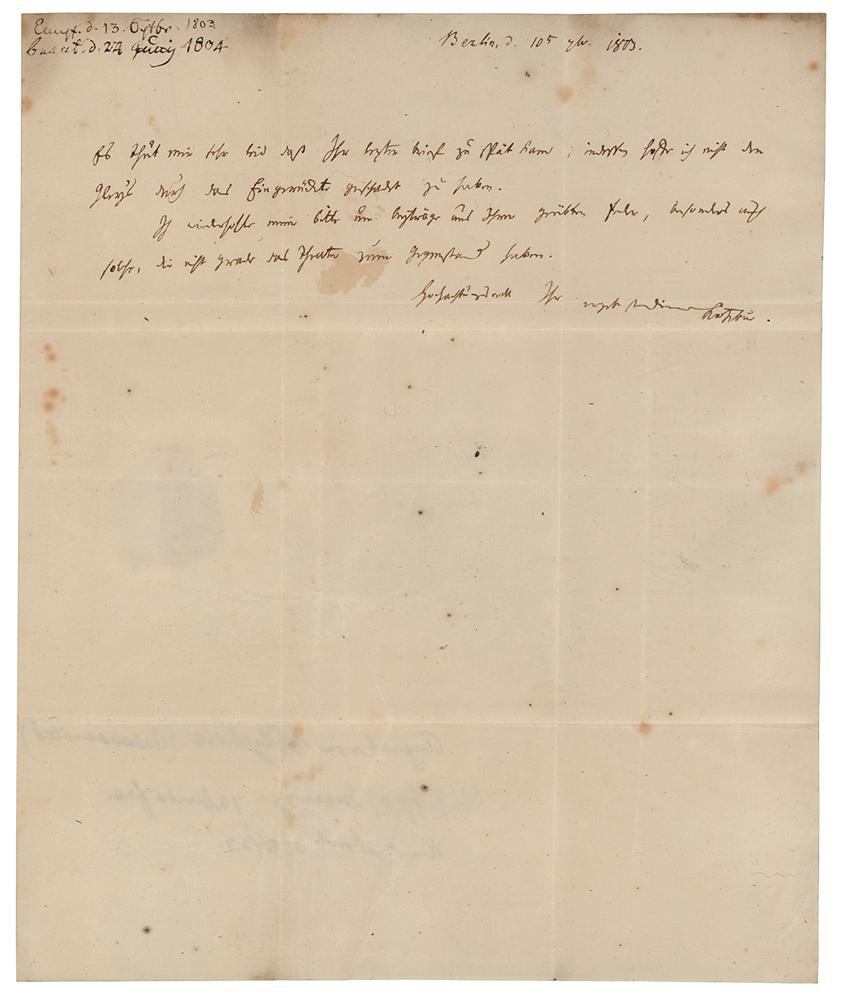 Empf. d. 13. Octbr. 1803
beant. d. 24 Juny 1804
Berlin, d. 10t 1803.
Es thut mir sehr leid daß Ihr letzter brief zu spät kam; indessen hoffe ich nicht den
durch das Eingerückte geschadet zu haben.
Ich wiederhohle meine bitte um beyträge aus Ihrer geübten Feder, besonders auch
solche, die nicht grade das Theater zum Gegenstand haben.
Hochachtungsvoll Ihr Kotzebue.